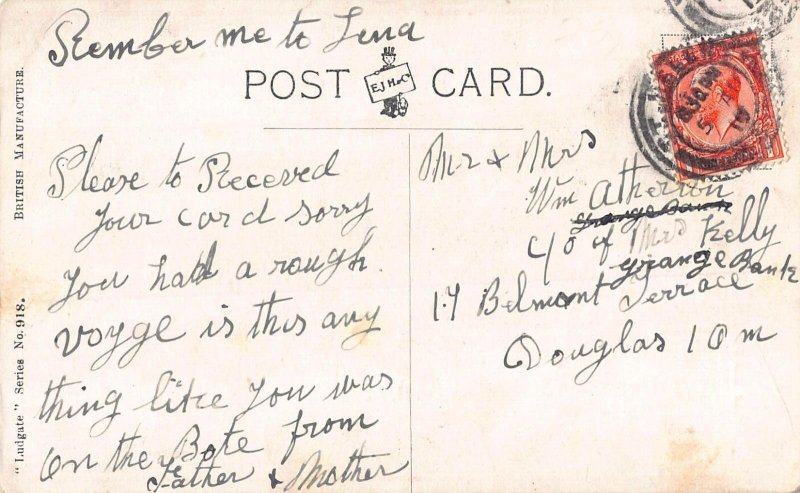 Rember me to Lena
POST CARD.
E J H & Co
BRITISH MANUFACTURE.
"Ludgate" Series No. 918.
Please to Receved
Your card sorry
You had a rough
voyge is this any
thing like You was
on the Bote from
Father & Mother
Mr & Mrs
Wm Atherton
c/o of Mrs Kelly
grange Bank
17 Belmont Terrace
Douglas I O m